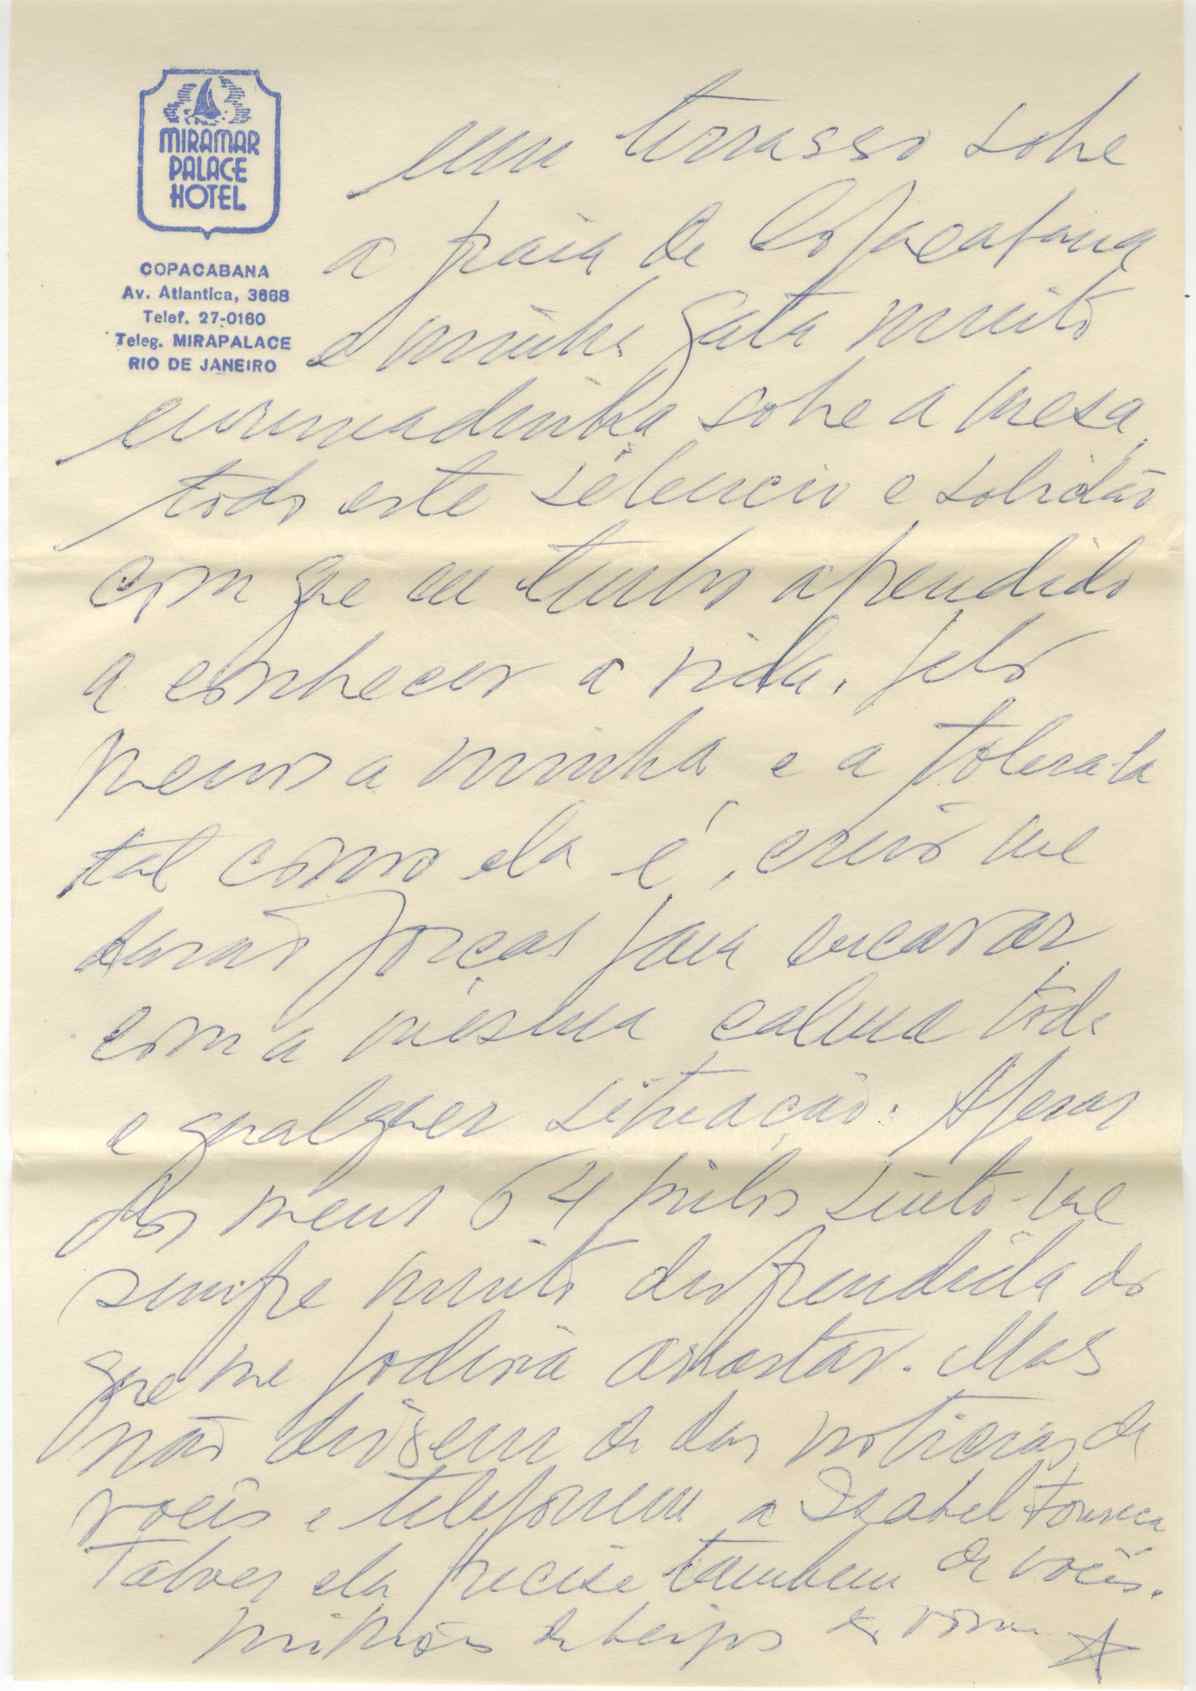 MIRAMAR
PALACE
HOTEL
COPACABANA
Av. Atlantica, 3668
Telef. 27-0160
Teleg. MIRAPALACE
RIO DE JANEIRO
um terrasso sobre
a praia de Copacabana
e minha gata muito
sobre a mesa,
todo este silencio e solidão
com que eu tenho aprendido
a conhecer a vida, pelo
menos a minha e a tolera-la
tal como ela é, creio me
darão forças para encarar
com a mesma calma toda
e qualquer situação. Apesar
dos meus 64 sinto-me
sempre muito desprendida do
que me poderia arrastar. Mas
não deixem de dar noticias de
vocês e telefonem a Isabel Fonseca
Talvez ela precise tambem de vocês.
Milhões de beijos da